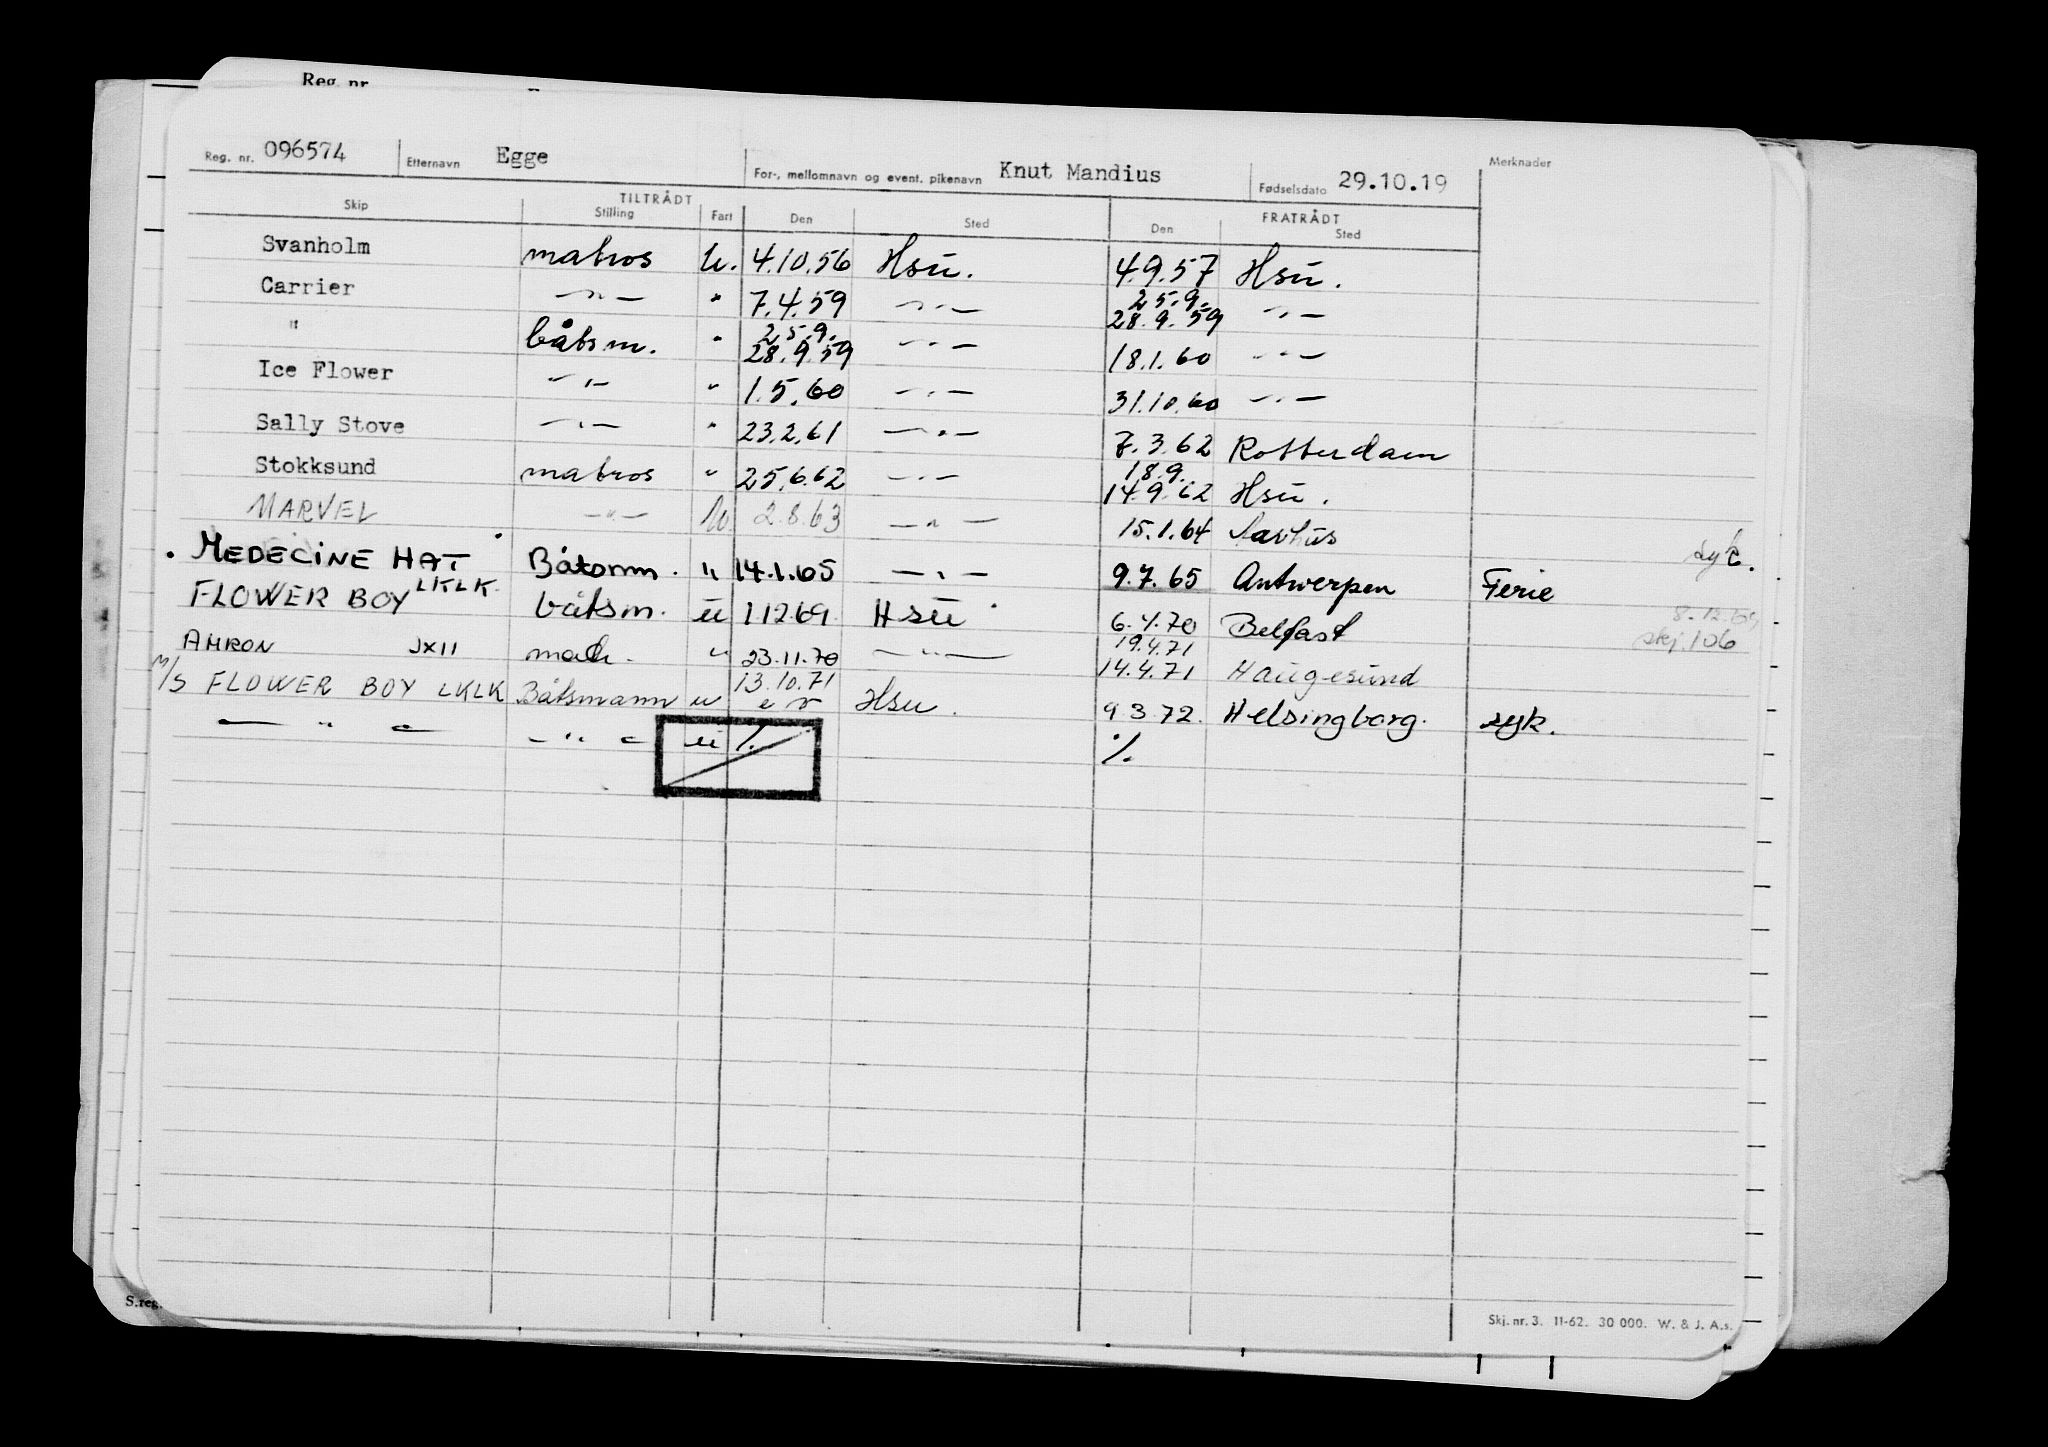 Reg. nr.
Reg. nr. 096574 Etternavn Egge For-, mellomnavn og event. pikenavn Knut Mandius Fødselsdato 29.10.19 Merknader
TILTRÅDT FRATRÅDT
Skip Stilling Fart Den Sted Den Sted
Svanholm matros u. 4.10.56 Hsu. 4.9.57 Hsu.
Carrier -"- " 7.4.59 -"- 25.9. 28.9.59 -"-
" båtsm. " 25.9. 28.9.59 -"- 18.1.60 -"-
Ice Flower -"- " 1.5.60 -"- 31.10.60 -"-
Sally Stove -"- " 23.2.61 -"- 7.3.62 Rotterdam
Stokksund matros " 25.6.62 -"- 18.9. 14.9.62 Hsu.
MARVEL -"- 2.8.63 -"- 15.1.64 Aarhus syk.
MEDECINE HAT Båtsm. " 14.1.65 -"- 9.7.65 Antwerpen Ferie
FLOWER BOY LKLK. båtsm. u 1.12.69 Hsu 6.4.70 Belfast 8.12.69 skj. 106
AHRON JXII " 23.11.70 -"- 19.4.71 14.4.71 Haugesund
M/S FLOWER BOY LKLK Båtsmann u 13.10.71 Hsu. 9.3.72. Helsingborg. syk.
-"- -"- u /. /.
S.reg.
Skj. nr. 3. 11-62. 30 000. W. & J. A.s.